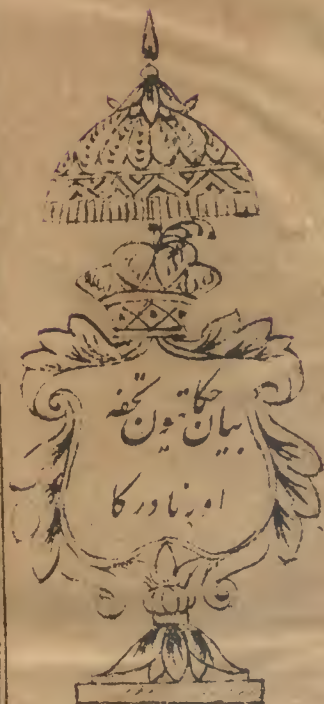 بیان حکایتیون تحفه
اور نادر کا